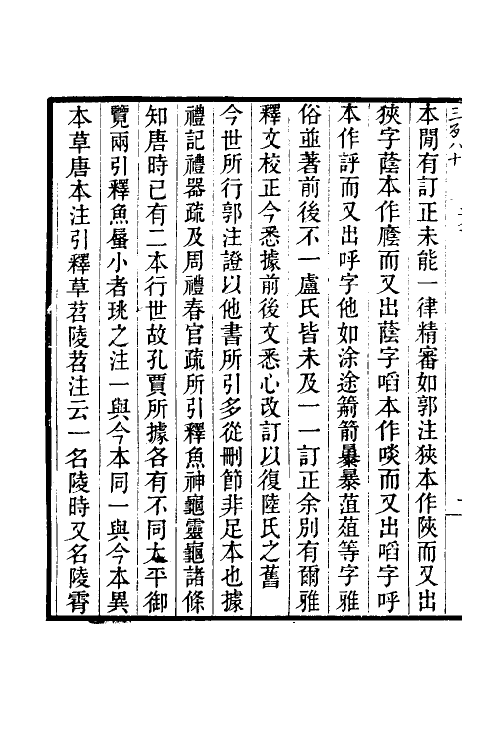 本閒有訂正未能一律精審如郭注狹本作陝而又出
狹字蔭本作廕而又出蔭字啗本作啖而又出啗字呼
本作評而又出呼字他如涂途箾箭曓暴菹葅等字雅
俗並著前後不一盧氏皆未及一一訂正余別有爾雅
釋文校正今悉據前後文悉心改訂以復陸氏之舊
今世所行郭注證以他書所引多從刪節非足本也據
禮記禮器疏及周禮春官疏所引釋魚神龜靈龜諸條
知唐時已有二本行世故孔賈所據各有不同太平御
覽兩引釋魚蜃小者珧之注一與今本同一與今本異
本草唐本注引釋草苕陵苕注云一名陵時又名陵霄